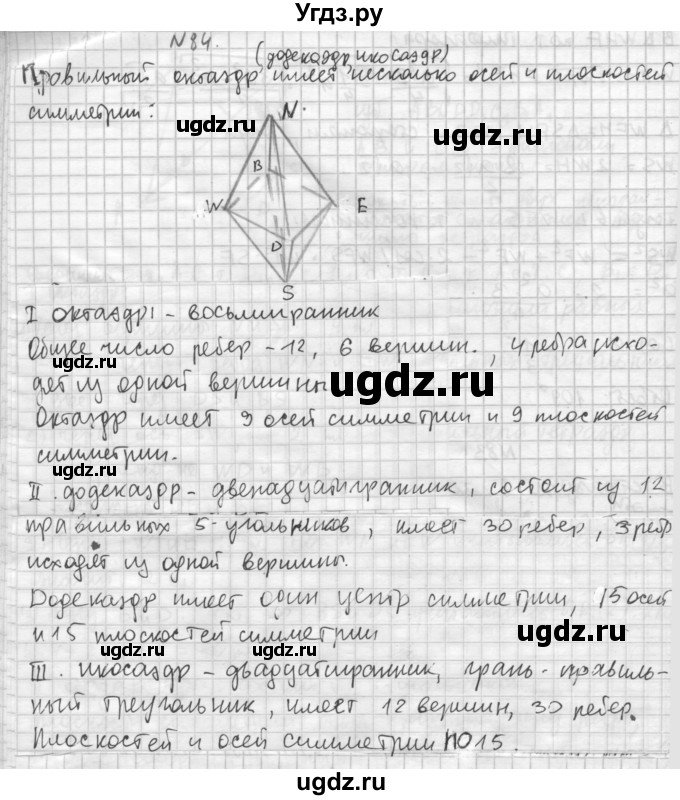 Угдз.ру
N 84.
(додекаэдр, икосаэдр)
Правильный октаэдр имеет несколько осей и плоскостей
симметрии:
N
B
W
E
D
S
I октаэдр - восьмигранник
Общее число ребер - 12, 6 вершин., 4 ребра исхо-
дят из одной вершины
Октаэдр имеет 9 осей симметрии и 9 плоскостей
симметрии.
II. додекаэдр - двенадцатигранник, состоит из 12
правильных 5-угольников, имеет 30 ребер, 3 ребр
исходят из одной вершины.
Додекаэдр имеет один центр симметрии, 15 осей
и 15 плоскостей симметрии
III. икосаэдр - двадцатигранник, грань - правиль-
ный треугольник, имеет 12 вершин, 30 ребер.
Плоскостей и осей симметрии по 15.
ugdz.ru
ugdz.ru
ugdz.ru
ugdz.ru
ugdz.ru
ugdz.ru
ugdz.ru
ugdz.ru
ugdz.ru
ugdz.ru
ugdz.ru
ugdz.ru
ugdz.ru